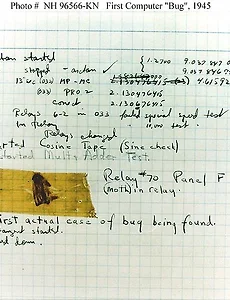 Photo # NH 96566-KN First Computer "Bug", 1945
started
stopped - arctan ✓ { 1.2700 9.037 847 0
13"uc (033) MP - MC 9.037 846
(033) PRO 2 2.130476415
correct 2.130676415
Relays 6-2 in 033 failed special speed test
in Relay 10,000 test.
Relays changed
Cosine Tape (Sine check)
Started Multi Adder Test.
Relay #70 Panel F
(moth) in relay.
First actual case of bug being found.
started.